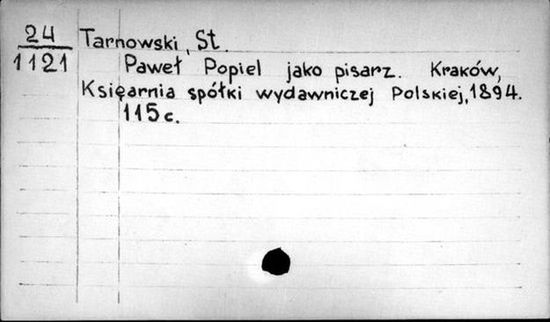 24
1121
Tarnowski, St.
Paweł Popiel jako pisarz. Kraków,
Księarnia spółki wydawniczej Polskiej, 1894.
115 c.